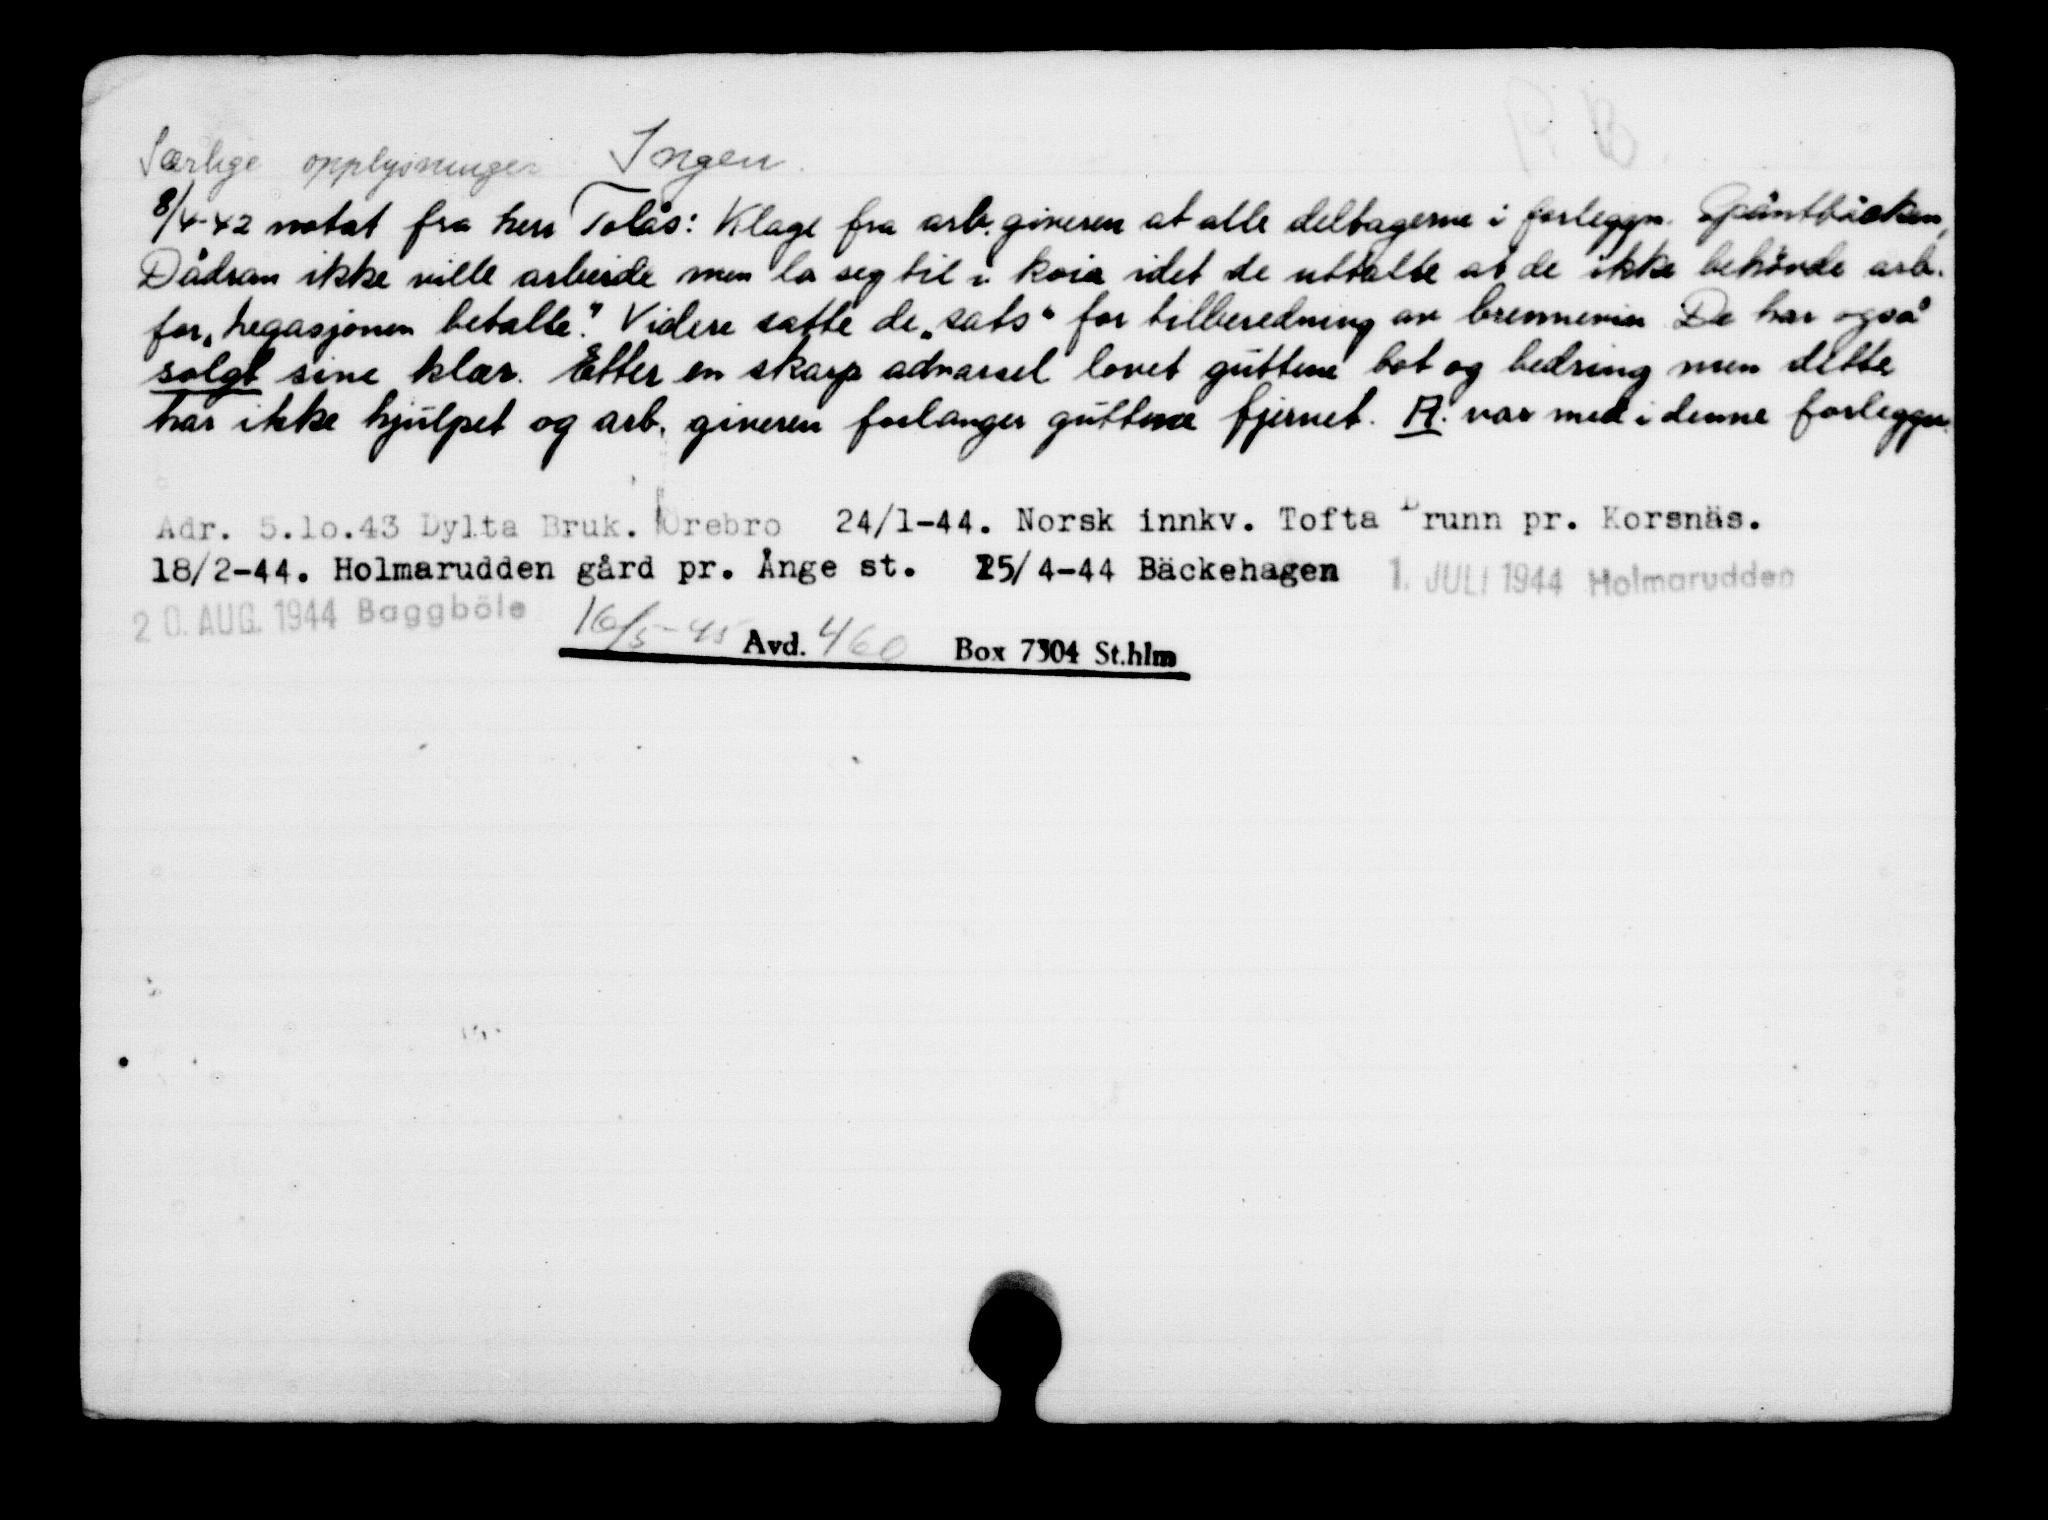 Særlige opplysninger Ingen.
8/4-42 notat fra herr Tolås: Klage fra arb.giveren at alle deltagerne i forleggn. Spåntbäcken,
Dådran ikke ville arbeide men la seg til i koia idet de uttalte at de ikke behövde arb.
for „legasjonen betalte." Videre satte de „sats" for tilberedning av brennevin De har også
solgt sine klær. Etter en skarp advarsel lovet guttene bot og bedring men dette
har ikke hjulpet og arb. giveren forlanger guttene fjernet. A. var med i denne forleggn.
Adr. 5.10.43 Dylta Bruk. Örebro 24/1-44. Norsk innkv. Tofta Brunn pr. Korsnäs.
18/2-44. Holmarudden gård pr. Ånge st. 25/4-44 Bäckehagen 1. JULI 1944 Holmarudden
20. AUG. 1944 Baggböle 16/5-45 Avd. 460 Box 7304 St.hlm